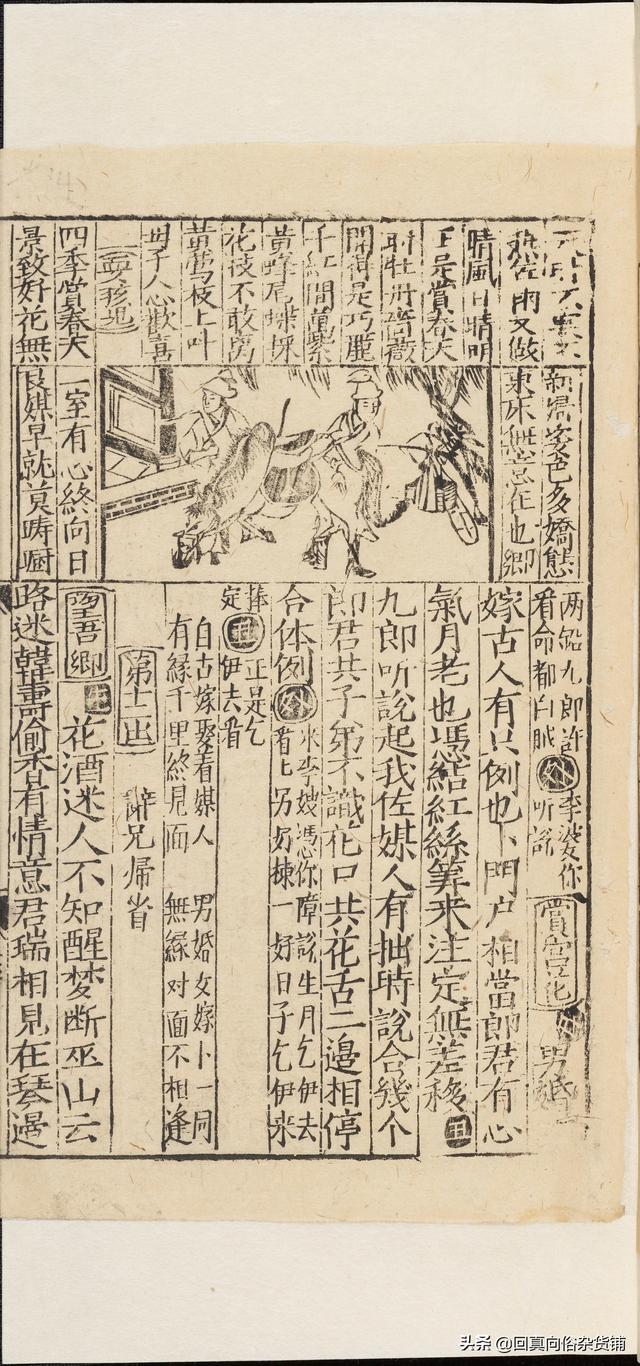 晴風日晴明
正是賞春天
牡丹薔薇
開得是巧麗
千紅間萬紫
黃蜂尾蝶採
花枝不敢
黃鶯枝上叫
毋子人心歡喜
耍孩兒
四季賞春天
景致好花無
多嬌態
東床無意在也卿
一室有心終向日
良媒早就莫疇厨
两 九郎許 李婆你
看命都白賊 外 听說
賞宮花 男婚
嫁古人有只例也卜門户相當郎君有心
氣月老也憑結紅絲筭來注定無差移 丑
九郎听說起我佐媒人有拙時說合幾个
郎君共子弟不識花口共花舌二邊相停
合体例 外 来李嫂憑你障說生月乞伊去
看 另好揀一好日子乞伊来
捧
定 丑 正是乞
伊去看
自古嫁娶看媒人 男婚女嫁卜一同
有緣千里終見面 無緣对面不相逢
第十一出 辭兄歸省
望吾鄉 生 花酒迷人不知醒梦断巫山云
路迷韓壽偷香有情意君瑞相見在琴邊
头条 @回真向俗杂货铺